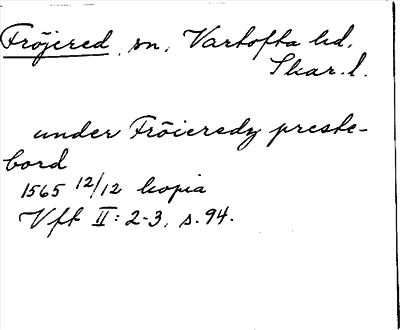 Fröjered, sn, Vartofta hd,
Skar. l.
under Fröiersdz preste-
bord
1565 12/12 kopia
Vft II: 2-3, s. 94.